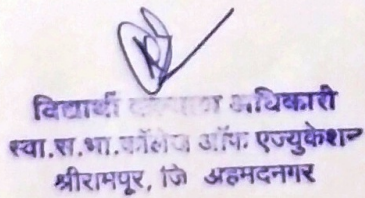 विद्यार्थी कल्याण अधिकारी
स्वा.स.भा.कॉलेज ऑफ एज्युकेशन
श्रीरामपूर, जि अहमदनगर